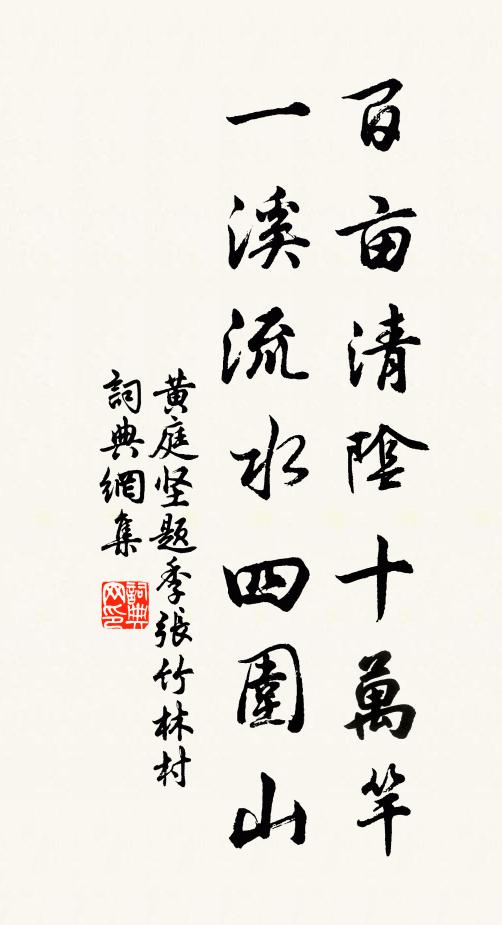 百亩清陰十萬竿
一溪流水四圍山
黄庭坚题季張竹林村
詞典網集
詞典网印